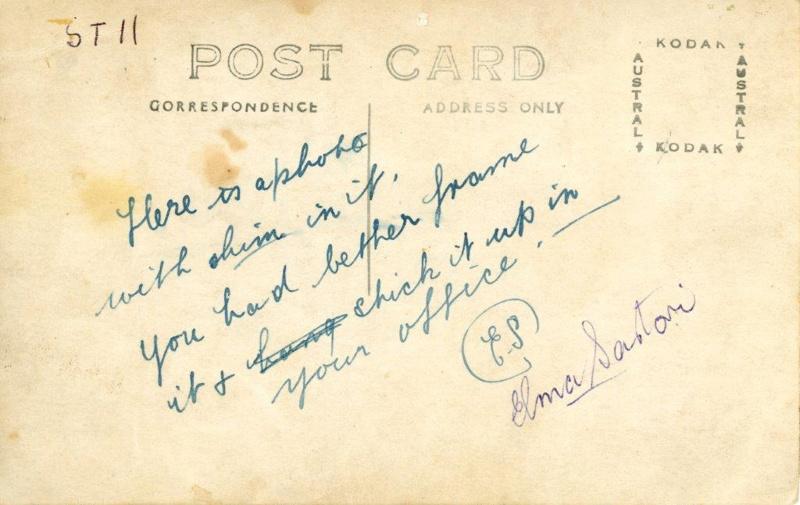 ST 11
POST CARD
CORRESPONDENCE
ADDRESS ONLY
KODAK
AUSTRAL
AUSTRAL
KODAK
Here is a photo
with him in it.
You had better frame
it & hang stick it up in
your office.
E.S
Elma Sartori